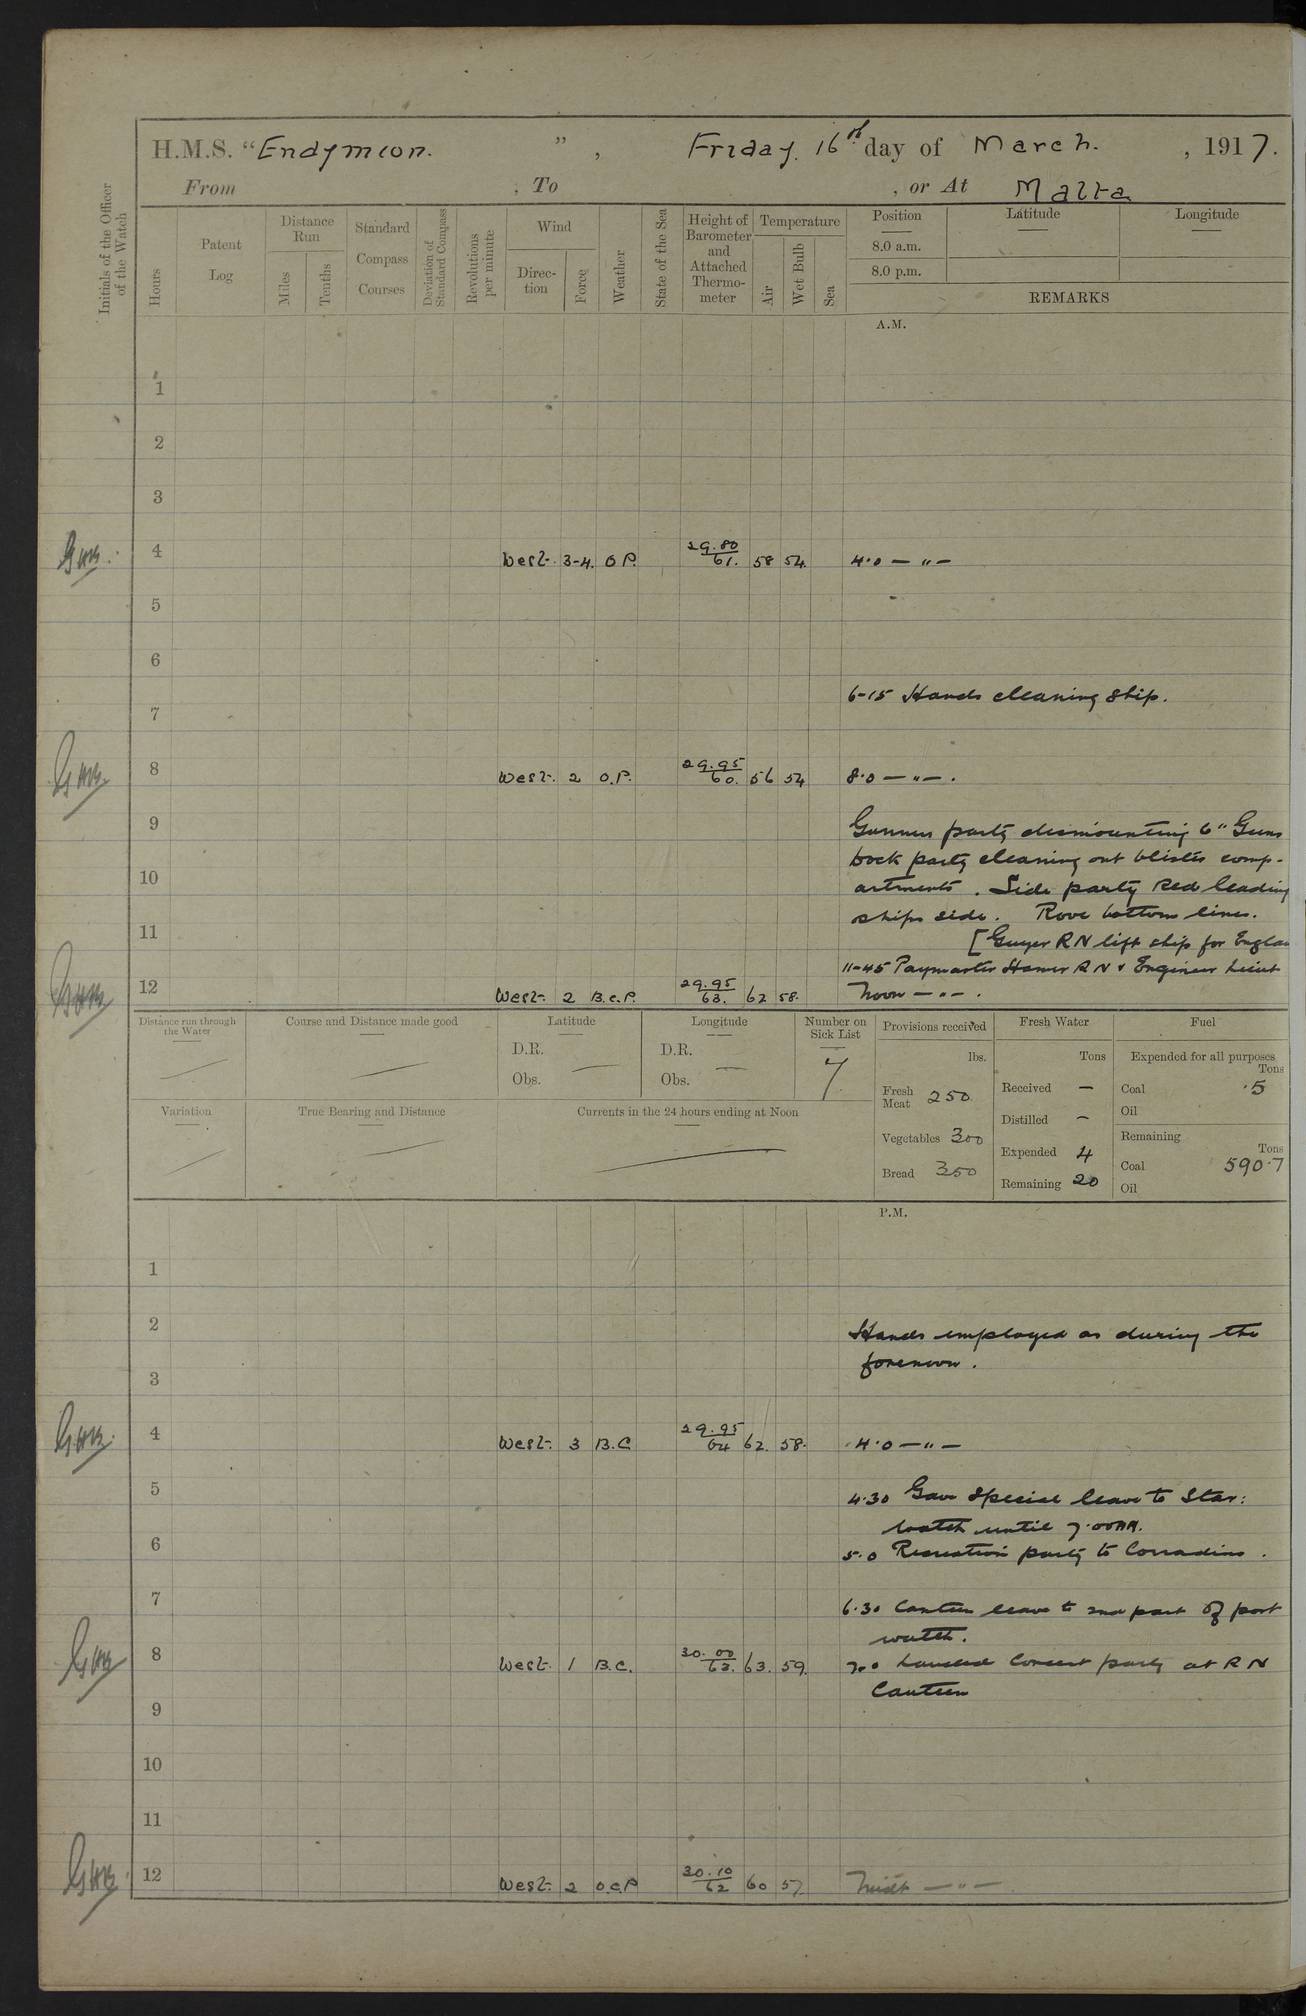 H.M.S. "Endymion.", Friday. 16th day of March., 1917.
From , To , or At Malta
Initials of the Officer of the Watch
Hours
Patent Log
Distance Run
Miles
Tenths
Standard Compass Courses
Deviation of Standard Compass
Revolutions per minute
Wind
Direction
Force
Weather
State of the Sea
Height of Barometer and Attached Thermometer
Temperature
Air
Wet Bulb
Sea
Position
Latitude
Longitude
8.0 a.m.
8.0 p.m.
REMARKS
A.M.
1
2
3
4 West. 3-4. O P. 29.80 61. 58 54. 4.0 — " —
5
6
6-15 Hands cleaning ship.
7
8 West. 2 O.P. 29.95 60. 56 54 8.0 — " — .
9 Gunners party dismounting 6" Guns
Dock party cleaning out blister comp-
10 artments. Side party Red leading
ships side. Rove bottom lines.
11 [Guyer RN left ship for Englan
11-45 Paymaster Hamer RN & Engineer Lieut
12 West. 2 B.C.P. 29.95 63. 62 58. Noon — " — .
Distance run through the Water
Course and Distance made good
Latitude
D.R.
Obs.
Longitude
D.R.
Obs.
Number on Sick List
7
Provisions received
lbs.
Fresh Meat 250
Vegetables 300
Bread 350
Fresh Water
Tons
Received —
Distilled —
Expended 4
Remaining 20
Fuel
Expended for all purposes
Tons
Coal .5
Oil
Remaining
Tons
Coal 590.7
Oil
Variation
True Bearing and Distance
Currents in the 24 hours ending at Noon
P.M.
1
2 Hands employed as during the
forenoon.
3
4 West. 3 B.C 29.95 64 62. 58. 4.0 — " —
5 4.30 Gave special leave to Star:
watch until 7.00AM.
6 5.0 Recreation party to Corradino.
7 6.30 Canteen leave to 2nd part of port
watch.
8 West. 1 B.C. 30.00 63. 63. 59. 7.0 Landed Concert party at R N
Canteen
9
10
11
12 West. 2 O.C.P 30.10 62 60 57 Midt — " —